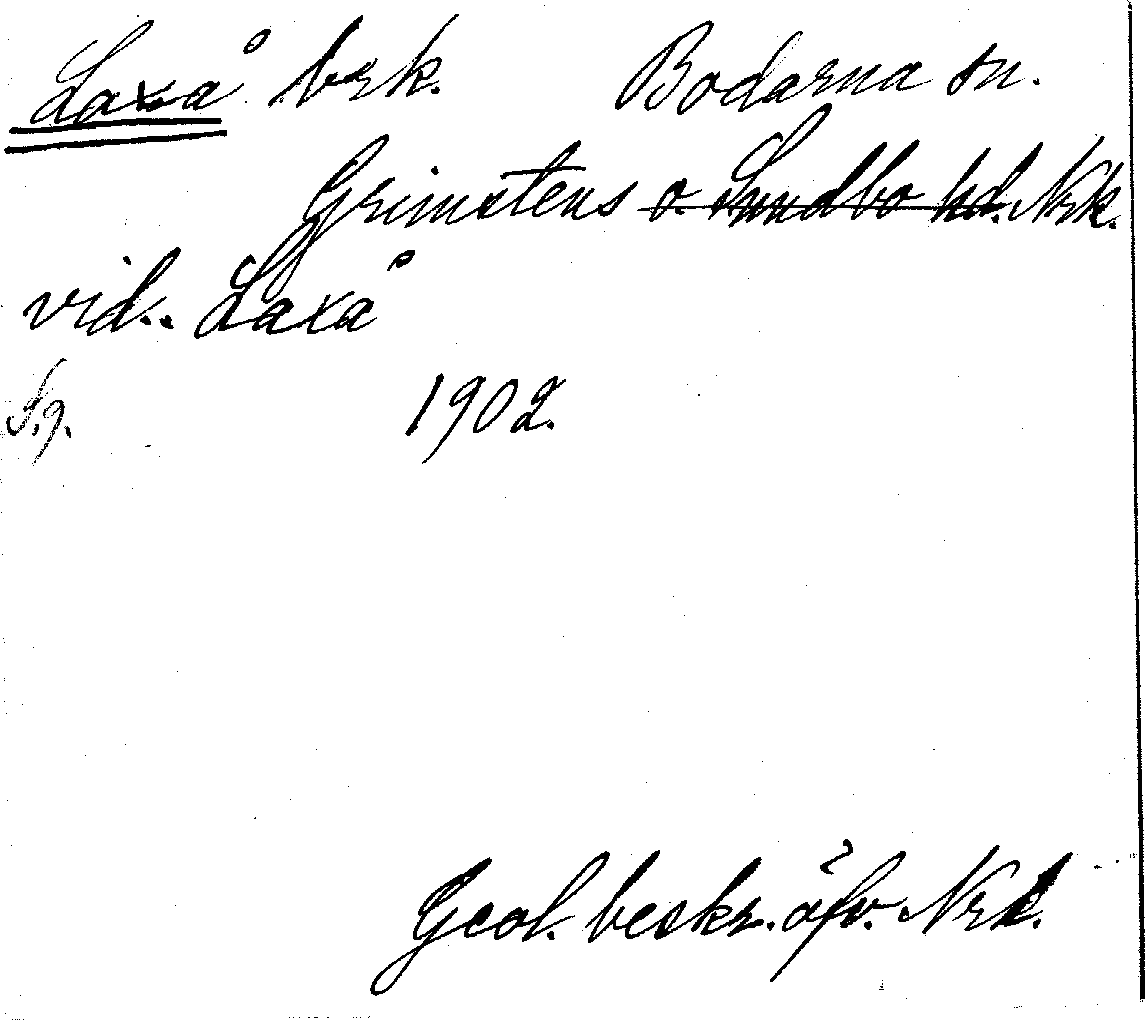 Laxå brk. Bodarna sn.
Grimstens o. Sundbo hd. Nrk.
vid. Laxå
S.g. 1902.
Geol. beskr. öfv. Nrk.